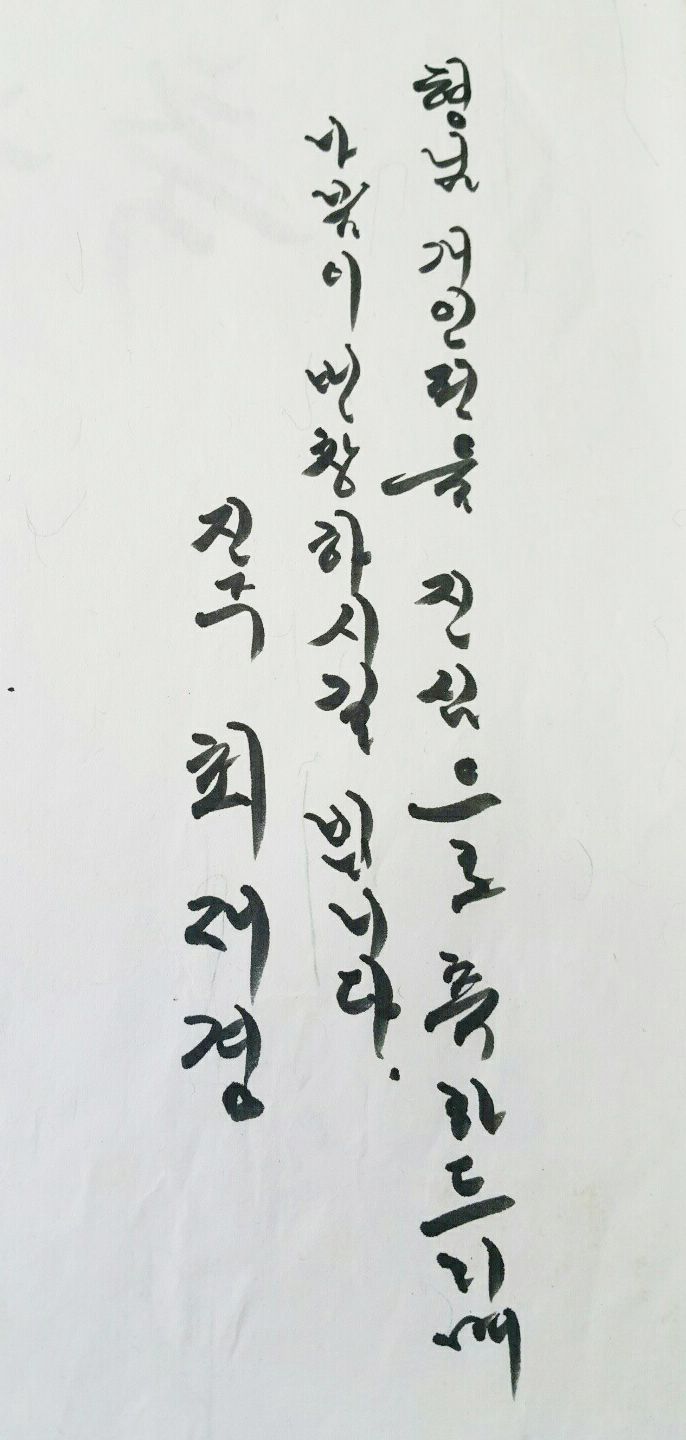 형님 개인전을 진심으로 축하드리며
나날이 번창하시길 빕니다.
진주 최재경